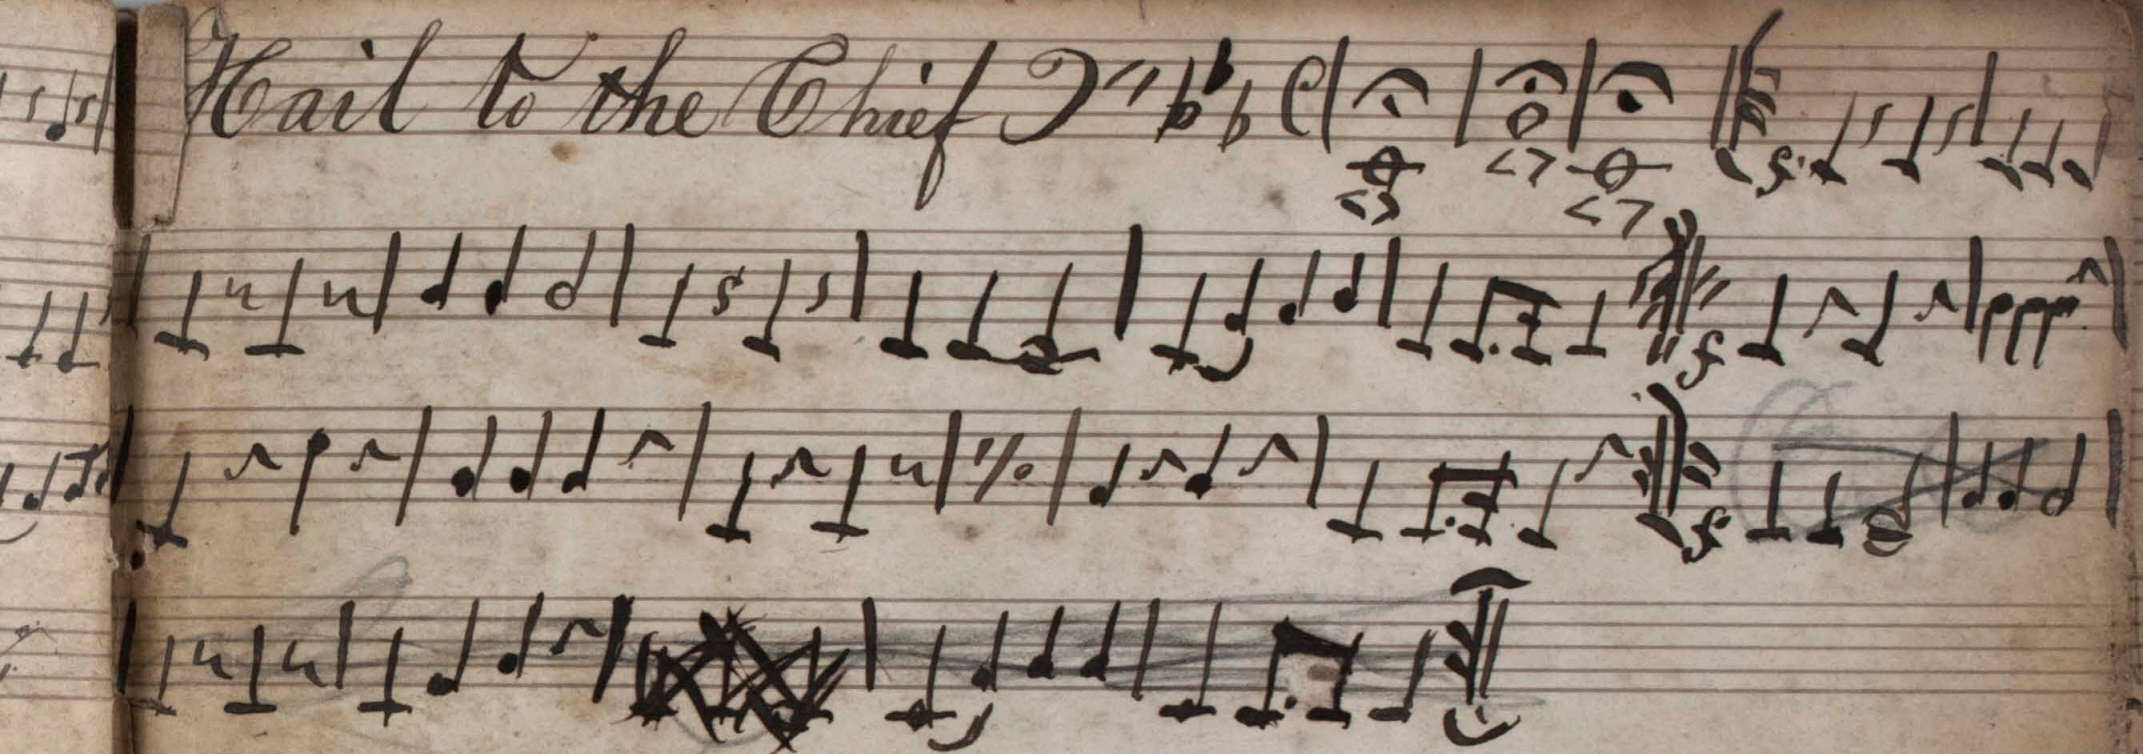 Hail to the Chief